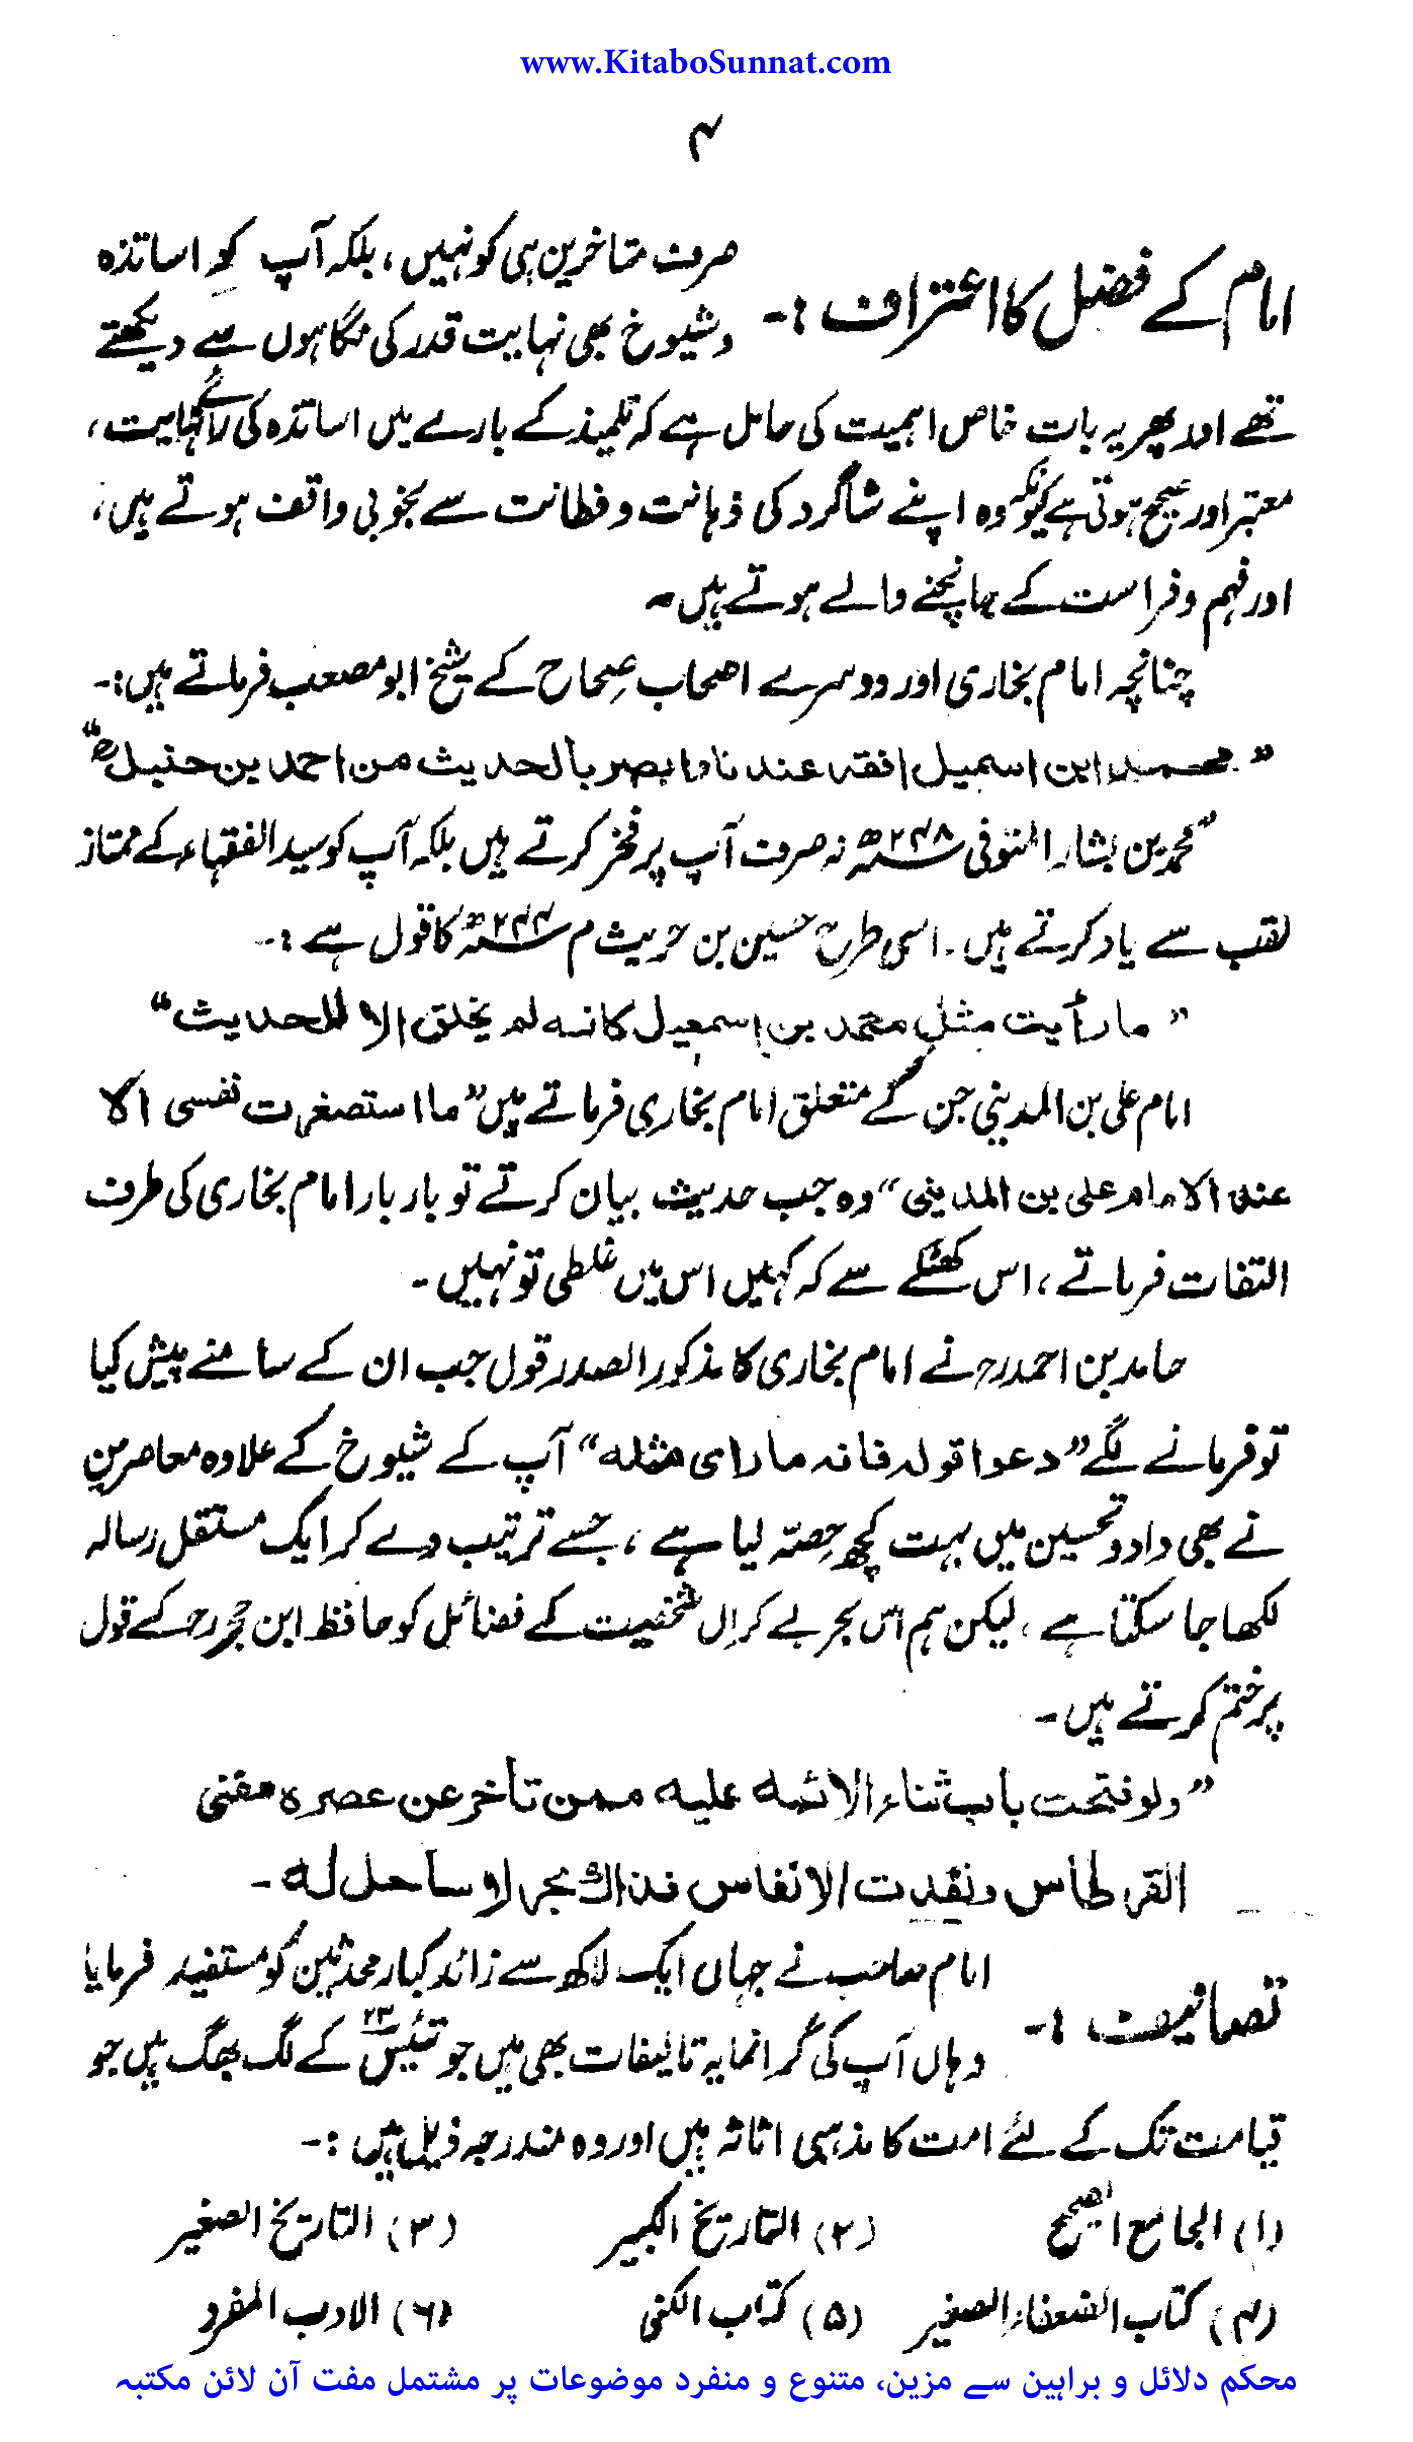 www.KitaboSunnat.com
۴
امام کے فضل کا اعتراف :- صرف متاخرین ہی کو نہیں، بلکہ آپ کو اساتذہ
و شیوخ بھی نہایت قدر کی نگاہوں سے دیکھتے
تھے اور پھر یہ بات خاص اہمیت کی حامل ہے کہ تلمیذ کے بارے میں اساتذہ کی رائے نہایت،
معتبر اور صحیح ہوتی ہے کیونکہ وہ اپنے شاگرد کی ذہانت و فطانت سے بخوبی واقف ہوتے ہیں،
اور فہم و فراست کے جانچنے والے ہوتے ہیں۔
چنانچہ امام بخاری اور دوسرے اصحاب صحاح کے شیخ ابو مصعب فرماتے ہیں:-
”محمد ابن اسمیل افقہ عندنا وابصر بالحدیث من احمد بن حنبلؒ“
محمد بن بشار المتوفی ۲۴۸ھ نہ صرف آپ پر فخر کرتے ہیں بلکہ آپ کو سید الفقہاء کے ممتاز
لقب سے یاد کرتے ہیں۔ اسی طرح حسین بن حریث م ۲۴۴ھ کا قول ہے :-
”ما رأیت مثل محمد بن اسمعیل کانه لم یخلق الا للحدیث“
امام علی بن المدینی جن کے متعلق امام بخاری فرماتے ہیں ”ما استصغرت نفسی الا
عند الامام علی بن المدینی“ وہ جب حدیث بیان کرتے تو بار بار امام بخاری کی طرف
التفات فرماتے، اس کھٹکے سے کہ کہیں اس میں غلطی تو نہیں۔
حامد بن احمدرح نے امام بخاری کا مذکور الصدر قول جب ان کے سامنے پیش کیا
تو فرمانے لگے ”دعوا قوله فانه ما رای مثله“ آپ کے شیوخ کے علاوہ معاصرین
نے بھی داد و تحسین میں بہت کچھ حصّہ لیا ہے، جسے ترتیب دے کر ایک مستقل رسالہ
لکھا جا سکتا ہے، لیکن ہم اس بحر بے کراں شخصیت کے فضائل کو حافظ ابن حجررح کے قول
پر ختم کرتے ہیں۔
”ولو فتحت باب ثناء الائمه علیه ممن تأخر عن عصره مفنی
القرطاس ونفدت الانفاس فذاك بحر لا ساحل له۔
تصانیف :- امام صاحب نے جہاں ایک لاکھ سے زائد کبار محدثین کو مستفید فرمایا
وہاں آپ کی گرانمایہ تالیفات بھی ہیں جو تئیس ۲۳ کے لگ بھگ ہیں جو
قیامت تک کے لئے امت کا مذہبی اثاثہ ہیں اور وہ مندرجہ ذیل ہیں :-
(۱) الجامع الصحیح (۲) التاریخ الکبیر (۳) التاریخ الصغیر
(۴) کتاب الضعفاء الصغیر (۵) کتاب الکنی (۶) الادب المفرد
محکم دلائل و براہین سے مزین، متنوع و منفرد موضوعات پر مشتمل مفت آن لائن مکتبہ